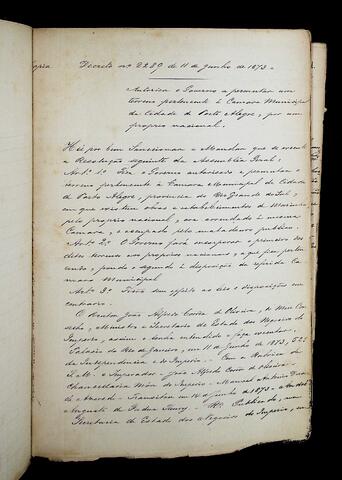 Copia Decreto nº 2289 de 11 de Junho de 1873.
Autorisa o Governo a permutar um
terreno pertencente á Camara Municipal
da Cidade de Porto Alegre, por um
proprio nacional.
Hei por bem Sanccionar e Mandar que se execute
a Resolução seguinte da Assembléa Geral:
Art. 1º Fica o Governo autorisado a permutar o
terreno pertencente á Camara Municipal da Cidade
de Porto Alegre, provincia do Rio Grande do Sul,
em que existem obras e estabelecimentos de Marinha
pelo proprio nacional, concedido á mesma
Camara, e occupado pelo matadouro publico.
Art. 2º O Governo fará incorporar o primeiro dos
ditos terrenos aos proprios nacionaes, a que fica perten
cendo, pondo o segundo á disposição da referida Ca
mara Municipal
Art. 3º Ficão sem effeito as leis e disposições em
contrario.
O Doutor João Alfredo Corrêa de Oliveira, do Meu Con
selho, Ministro e Secretario de Estado dos Negocios do
Imperio, assim o tenha entendido e faça executar.
Palacio do Rio de Janeiro, em 11 de Junho de 1873, 52º
da Independencia e do Imperio. Com a Rubrica de
S. M. o Imperador - João Alfredo Corrêa de Oliveira -
Chancellaria Mór do Imperio - Manoel Antonio Dua
de Azevedo - Transitou em 14 de Junho de 1873 - André
Augusto de Padua Fleury - Foi Publicado, na
Secretaria de Estado dos Negocios do Imperio, em